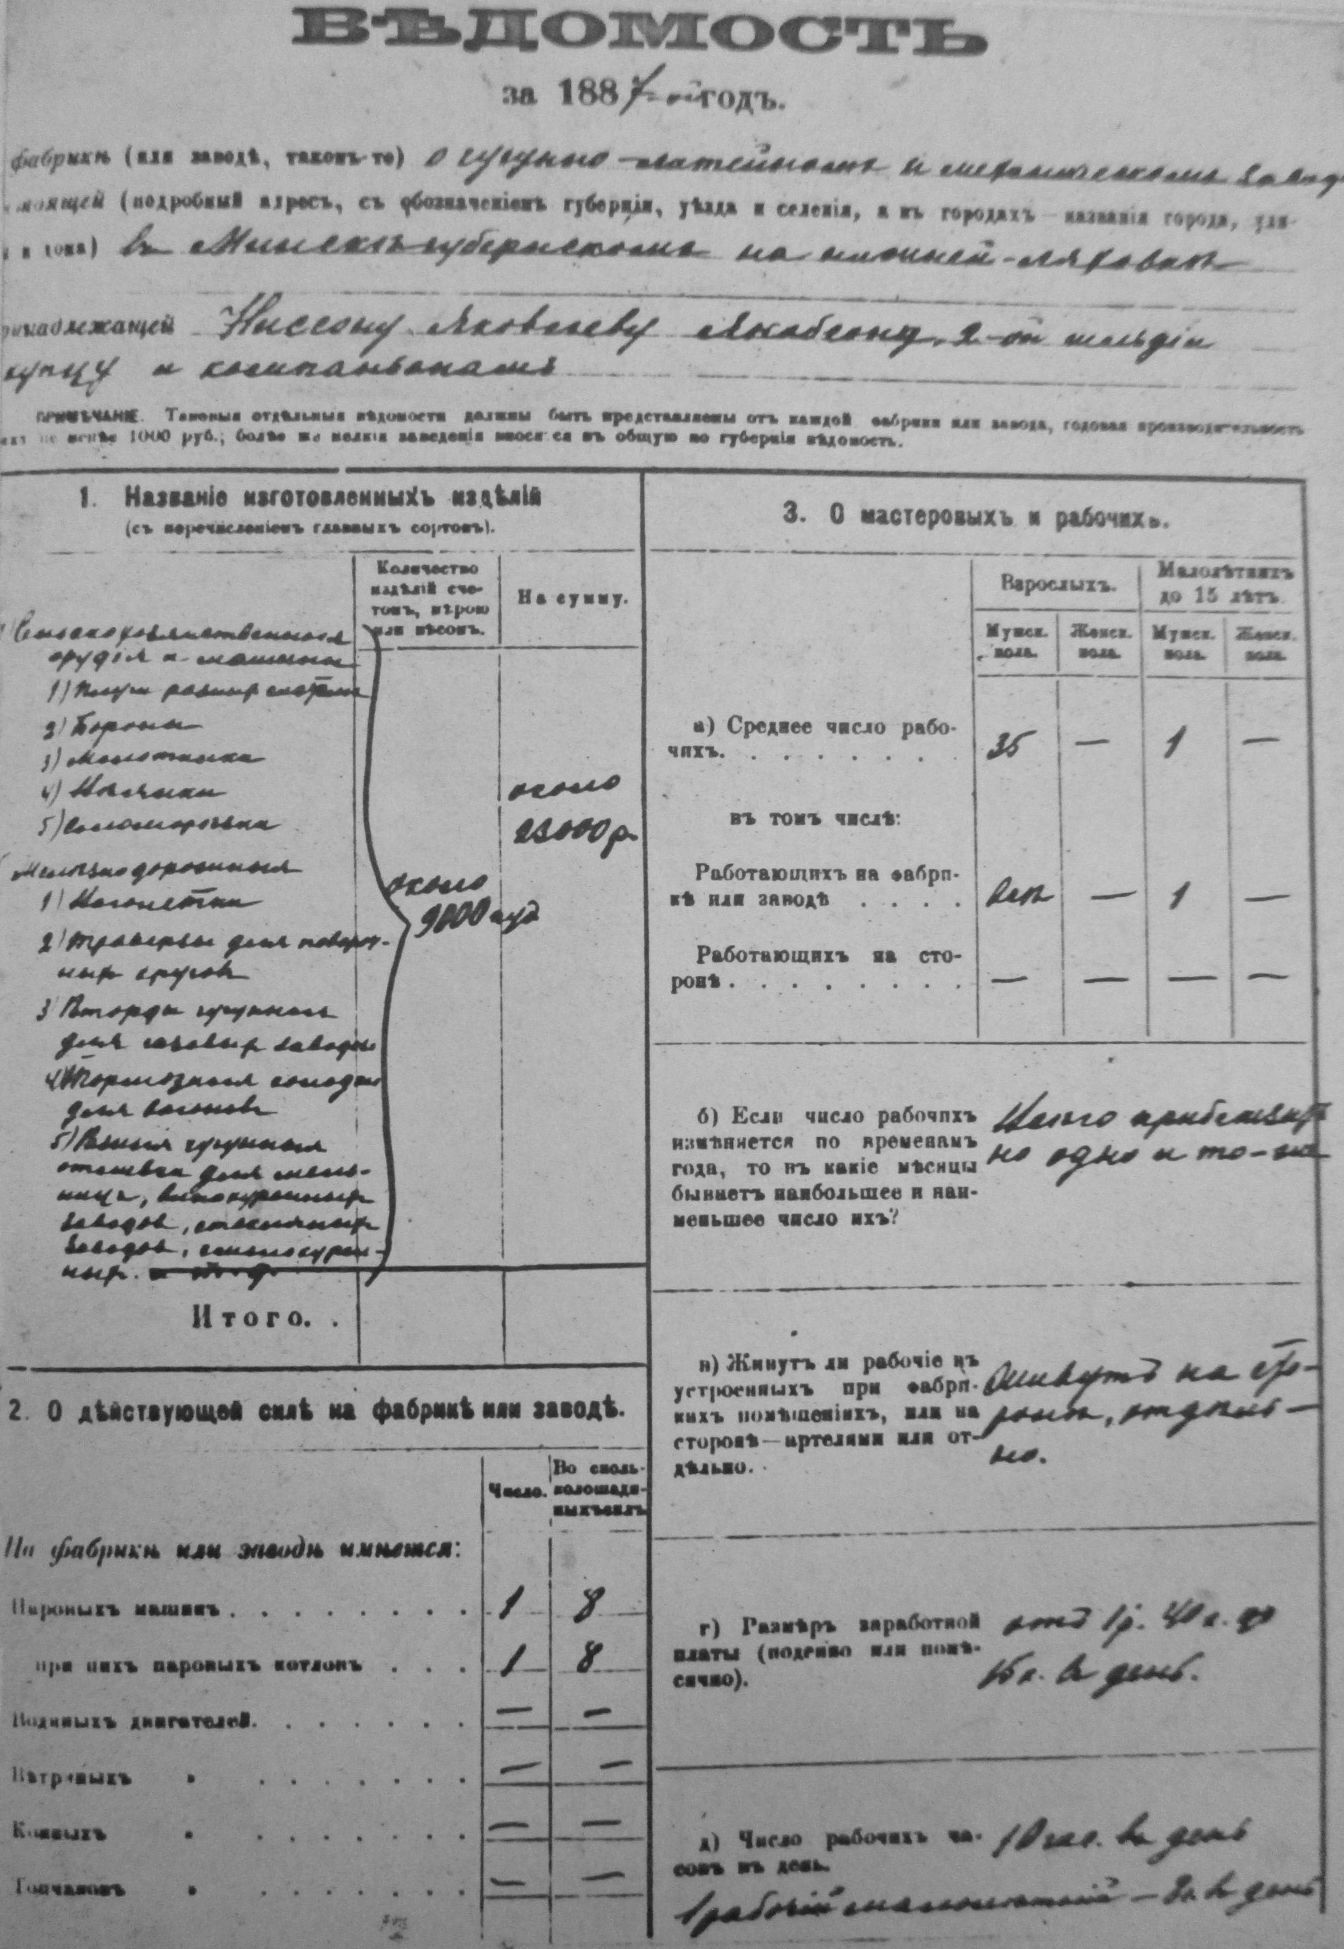 ВѢДОМОСТЬ
за 1887-ой годъ.
фабрикѣ (или заводѣ, таковъ-то) о чугунно-литейномъ и механическомъ завод
(подробный адресъ, съ обозначеніемъ губерніи, уѣзда и селенія, а въ городахъ—названія города, ули-
и дома) въ Минскѣ губернскомъ на нижней-Ляховкѣ
принадлежащей Ниссону Яковлеву Якобсону, 2-ой гильдіи
купцу и компаньонамъ
ПРИМѢЧАНІЕ. Таковыя отдѣльныя вѣдомости должны быть представляемы отъ каждой фабрики или завода, годовая производительность
ихъ не менѣе 1000 руб.; болѣе же мелкія заведенія вносятся въ общую по губерніи вѣдомость.
1. Названіе изготовленныхъ издѣлій
(съ перечисленіемъ главныхъ сортовъ).
Количество
издѣлій сче-
томъ, мѣрою
или вѣсомъ.
На сумму.
Сельскохозяйственныя
орудія и машины
1) Плуги разныхъ системъ
2) Бороны
3) Молотилки
4) Вѣялки
5) Соломорѣзки
Желѣзнодорожныя
1) Вагонетки
2) Траверзы для поворот-
ныхъ круговъ
3) Реторты чугунныя
для газовыхъ заводовъ
4) Тормозныя колодки
для вагоновъ
5) Разныя чугунныя
отливки для мель-
ницъ, винокуренныхъ
заводовъ, стеклянныхъ
заводовъ, смолокурен-
ныхъ. и т. д.
около
9000 пуд
около
23000 р.
Итого. .
2. О дѣйствующей силѣ на фабрикѣ или заводѣ.
Число.
Во сколь-
колошади-
ныхъ силъ
На фабрикѣ или заводѣ имѣется:
Паровыхъ машинъ. . . . . . . . 1 8
при нихъ паровыхъ котловъ . . . 1 8
Водяныхъ двигателей. . . . . . . — —
Вѣтряныхъ " . . . . . . . — —
Конныхъ " . . . . . . . — —
Топчаковъ " . . . . . . . — —
3. О мастеровыхъ и рабочихъ.
Взрослыхъ.
Малолѣтнихъ
до 15 лѣтъ.
Мужск.
пола.
Женск.
пола.
Мужск.
пола.
Женск.
пола.
а) Среднее число рабо-
чихъ. . . . . . . . 35 — 1 —
въ томъ числѣ:
Работающихъ на фабри-
кѣ или заводѣ . . . . Всѣ — 1 —
Работающихъ на сто-
ронѣ. . . . . . . . — — — —
б) Если число рабочихъ
измѣняется по временамъ
года, то въ какіе мѣсяцы
бываетъ наибольшее и наи-
меньшее число ихъ?
Всего приблизитель
но одно и то-же
в) Живутъ ли рабочіе въ
устроенныхъ при фабри-
кахъ помѣщеніяхъ, или на
сторонѣ—артелями или от-
дѣльно.
Живутъ на сто-
ронѣ, отдѣль-
но.
г) Размѣръ заработной
платы (поденно или помѣ-
сячно).
отъ 1р. 40 к. до
15 к. въ день.
д) Число рабочихъ ча-
совъ въ день.
10 час. въ день
1 рабочій малолѣтній — въ день